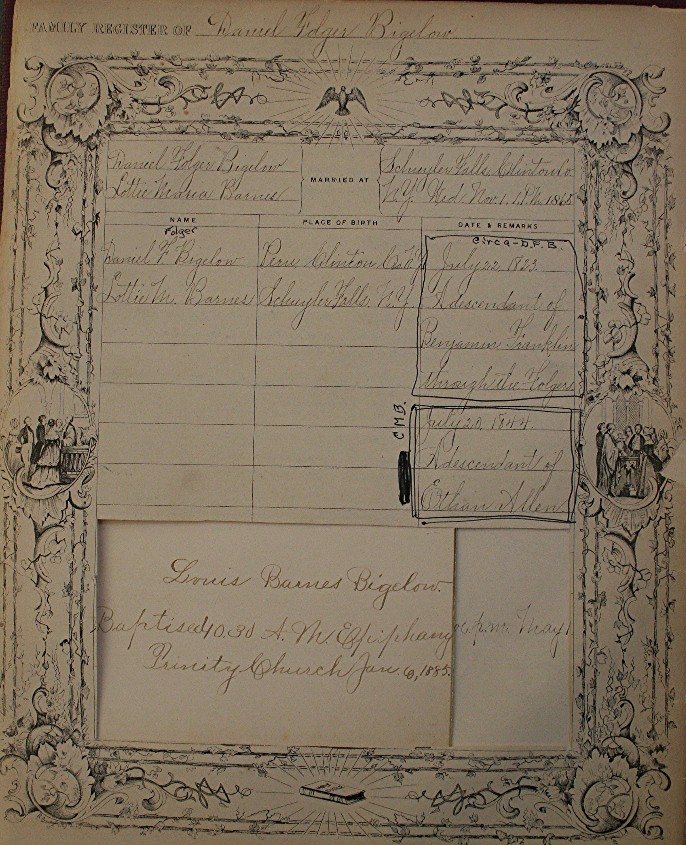 FAMILY REGISTER OF Daniel Folger Bigelow
Daniel Folger Bigelow
Lottie Maria Barnes
MARRIED AT
Schuyler Falls, Clinton Co.
N.Y. Wed. Nov. 1. P.M. 1865
NAME PLACE OF BIRTH DATE & REMARKS
Folger
Circa - D.F.B.
Daniel F. Bigelow Peru Clinton Co. N.Y. July 22, 1823.
Lottie M. Barnes Schuyler Falls, N.Y. A descendant of
Benjamin Franklin
through the Folgers
C.M.B.
July 20, 1844
A descendant of
Ethan Allen
Louis Barnes Bigelow.
Baptised 10.30 A.M. Epiphany
Trinity Church Jan. 6, 1885.
6 p.m. May 1